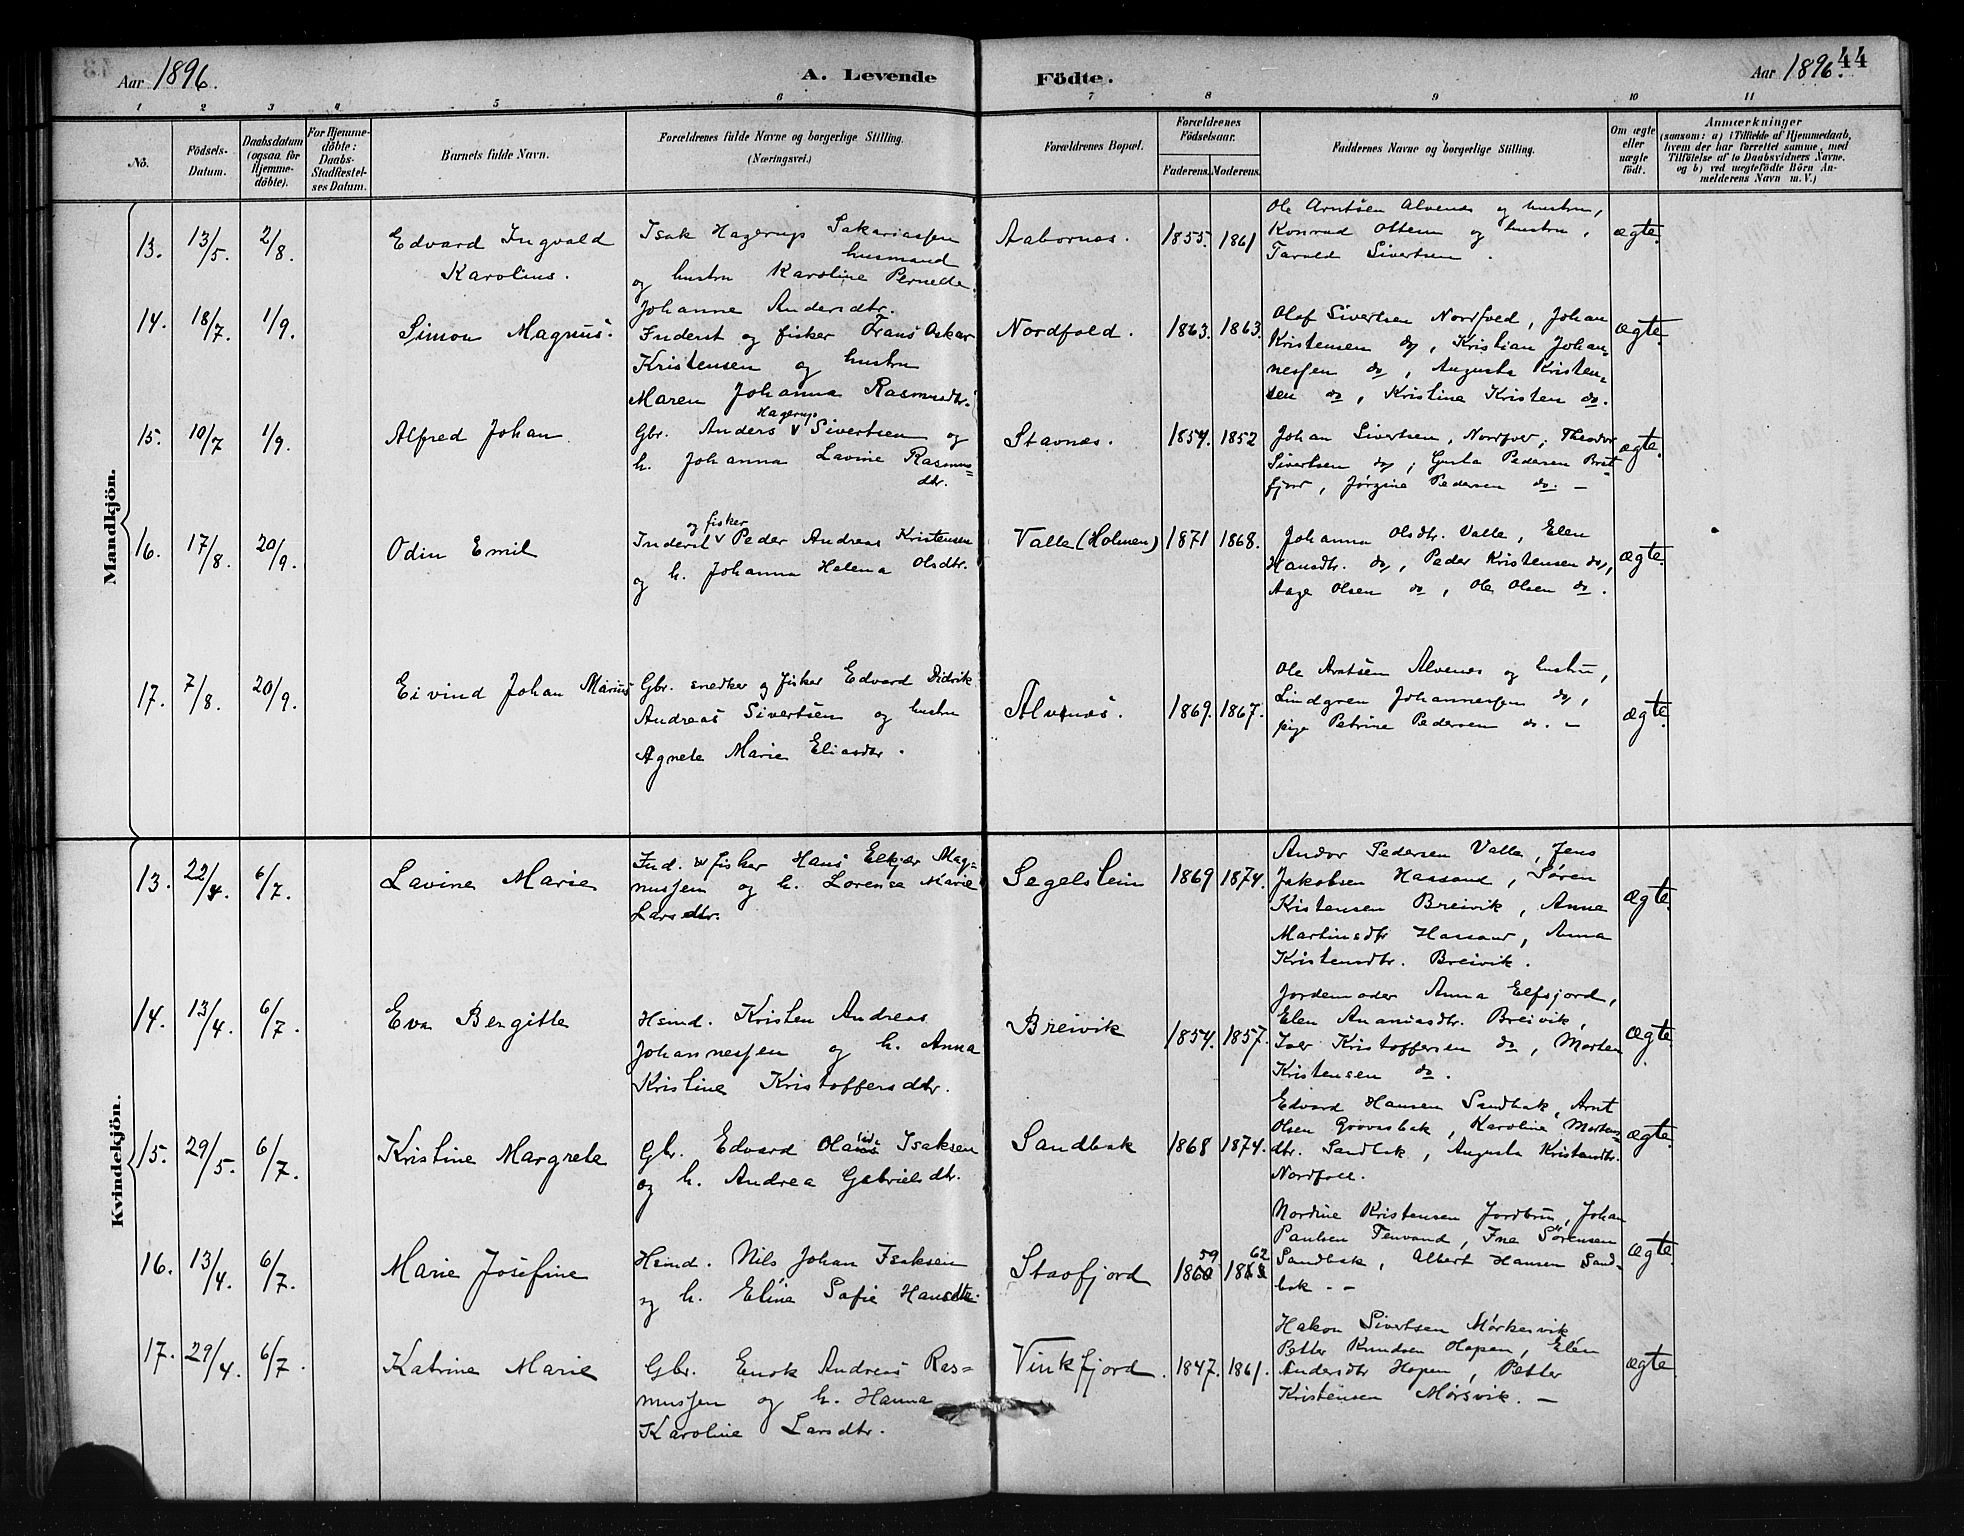 Aar 1896. A. Levende Födte. Aar 1896. 44
1 2 3 4 5 6 7 8 9 10 11
No.
Födsels-
Datum.
Daabsdatum
(ogsaa for
Hjemme-
döbte).
For Hjemme-
döbte:
Daabs-
Stadfæstel-
ses Datum.
Barnets fulde Navn.
Forældrenes fulde Navne og borgerlige Stilling.
(Næringsvei.)
Forældrenes Bopæl.
Forældrenes
Födselsaar.
Faderens. Moderens.
Faddernes Navne og borgerlige Stilling.
Om ægte
eller
uægte
födt.
Anmærkninger
(saasom: a) i Tilfælde af Hjemmedaab,
hvem der har forrettet samme, med
Tilföielse af to Daabsvidners Navne,
og b) ved uægtefödte Börn An-
melderens Navn m. V.)
Mandkjön.
13. 13/5 2/8.
Edvard Ingvald
Karolius.
Isak Hagerup Sakariassen
husmand
og hustru Karoline Pernelle
Johanne Andersdtr.
Aabornes. 1855. 1861
Ole Arntsen Alvenes og hustru,
Konrad Ottem og hustru,
Tarald Sivertsen.
ægte.
14. 18/7. 1/9.
Simon Magnus.
Inderst og fisker Frans Oskar
Kristensen og hustru
Maren Johanna Rasmusdtr.
Nordfold. 1863. 1863.
Olaf Sivertsen Nordfold, Johan
Kristensen do, Kristian Johan-
nessen do, Augusta Kristen-
sen do, Kristine Kristen do.
ægte.
15. 10/7 1/9.
Alfred Johan
Gbr. Anders Hagerup Sivertsen og
h. Johanna Lavine Rasmus-
dtr.
Stavnes. 1854. 1852
Johan Sivertsen, Nordfold, Theodor
Sivertsen do, Gusta Pedersen
fjord, Jørgine Pedersen do. -
ægte.
16. 17/8. 20/9.
Odin Emil
Inderst og fisker Peder Andreas Kristensen
og h. Johanna Helena Olsdtr.
Valle (Holmen) 1871 1868.
Johanna Olsdtr. Valle, Elen
Hansdtr. do, Peder Kristensen do,
Aage Olsen do, Ole Olsen do.
ægte.
17. 7/8. 20/9.
Eivind Johan Marius
Gbr. snedker og fisker Edvard Didrik
Andreas Sivertsen og hustru
Agnete Marie Eliasdtr.
Alvenes. 1869. 1867.
Ole Arntsen Alvenes og hustru,
Lindgren Johannessen do,
pige Petrine Pedersen do. -
ægte.
Kvindekjön.
13. 22/4. 6/7.
Lavine Marie
Ind. og fisker Hans Elkjær Mag-
nussen og h. Lorense Marie
Larsdtr.
Segelstein 1869 1874.
Andor Pedersen Valle, Jens
Jakobsen Hassand, Søren
Kristensen Breivik, Anne
Martinsdtr Hassand, Anna
Kristensdtr. Breivik.
ægte.
14. 13/4. 6/7.
Eva Bergitte
Hsmd. Kristen Andreas
Johannessen og h. Anna
Kristine Kristoffersdtr.
Breivik 1854. 1857.
Jordemoder Anna Elfsjord,
Elen Ananiasdtr. Breivik,
Iver Kristoffersen do, Morten
Kristensen do.
ægte.
15. 29/5. 6/7.
Kristine Margrete
Gbr. Edvard Isaksen
og h. Andrea Gabrielsdtr.
Sandbak 1868 1874.
Edvard Hansen Sandbak, Arnt
Olsen Groovasbak, Karoline Mortens-
dtr. Sandbak, Augusta Kristensdtr.
Nordfold.
ægte.
16. 13/4. 6/7.
Marie Josefine
Hsmd. Nils Johan Isaksen
og h. Eline Sofie Hansdtr.
Stavfjord 1859 1862
Nordine Kristensen Jordbru, Johan
Paulsen Tenvand, Fne Sørensen
Sandbak, Albert Hansen Sand-
bak. --
ægte.
17. 29/4. 6/7.
Katrine Marie
Gbr. Enok Andreas Ras-
mussen og h. Hanna
Karoline Larsdtr.
Vinkfjord. 1847. 1861.
Hakon Sivertsen Mørkesvik
Petter Knudsen Hopen, Elen
Andersdtr Hopen, Petter
Kristensen Mørsvik. -
ægte.